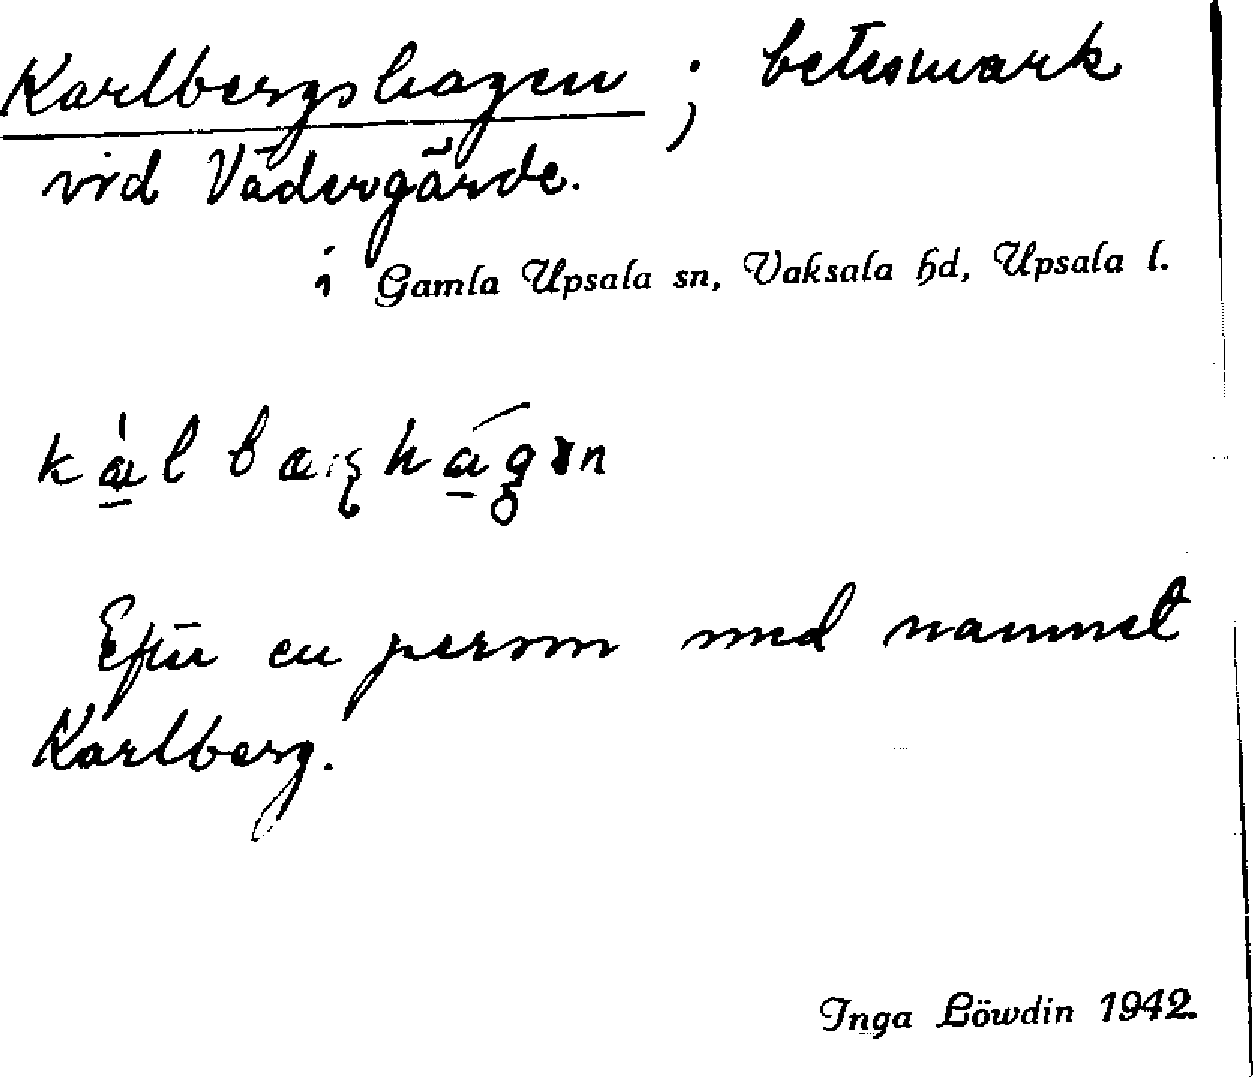 Karlbergshagen ; betesmark
vid Vädergärde.
i Gamla Upsala sn, Vaksala hd, Upsala l.
Efter en person med namnet
Karlberg.
Inga Löwdin 1942.